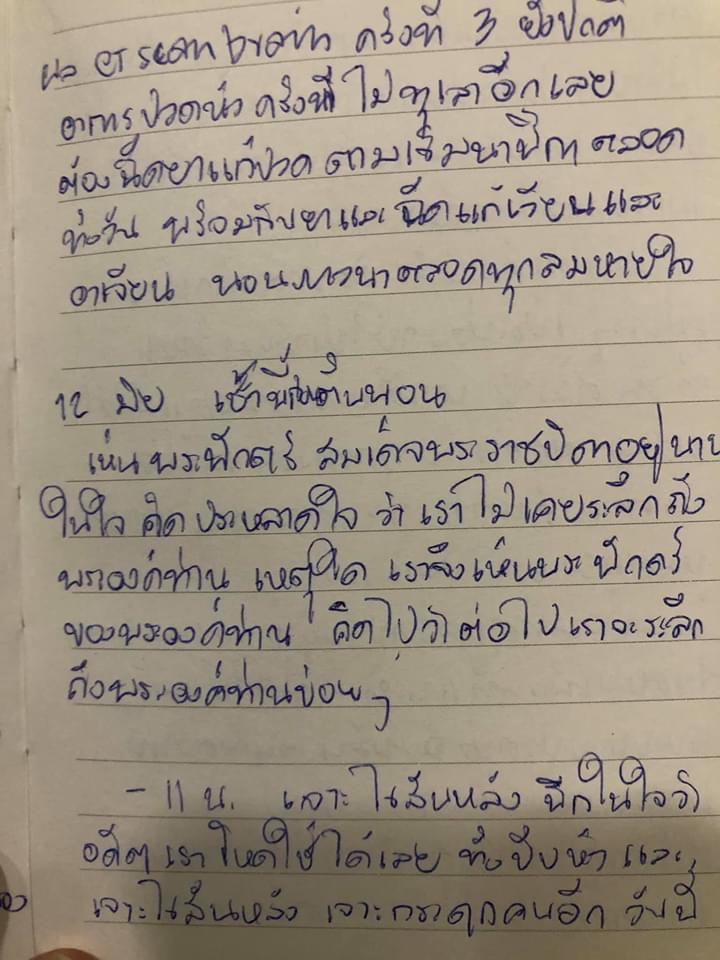 ผล CT scan brain ครั้งที่ 3 ยังปกติ
อาการปวดหัว ครั้งนี้ ไม่ทุเลาอีกเลย
ต้องฉีดยาแก้ปวด ตามเข็มนาฬิกา ตลอด
ทั้งวัน พร้อมกับยาและฉีดแก้เวียนและ
อาเจียน นอนภาวนาตลอดทุกลมหายใจ
12 มิย เช้าที่ตื่นนอน
เห็นพระพักตร์ สมเด็จพระราชบิดาอยู่นาน
ในใจ คิดประหลาดใจ ว่า เราไม่เคยระลึกถึง
พระองค์ท่าน เหตุใด เราจึงเห็นพระพักตร์
ของพระองค์ท่าน คิดไปว่าต่อไปเราจะระลึก
ถึงพระองค์ท่านบ่อยๆ
- 11 น. เจาะไขสันหลัง นึกในใจว่า
อดีตเราโหดใช้ได้เลย ทั้งปั๊มหัว และ
เจาะไขสันหลัง เจาะกระดูกคนอีก วันนี้